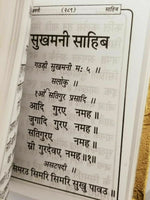 (२८९) साहिब
सुखमनी साहिब
गउड़ी सुखमनी म: ५ ॥
सलोकु ॥
१ओं सतिगुर प्रसादि ॥
आदि गुरए नमह ॥
जुगादि गुरए नमह ॥
सतिगुरए नमह ॥
स्री गुरदेवए नमह ॥१॥
असटपदी ॥
सिमरउ सिमरि सिमरि सुखु पावउ ॥